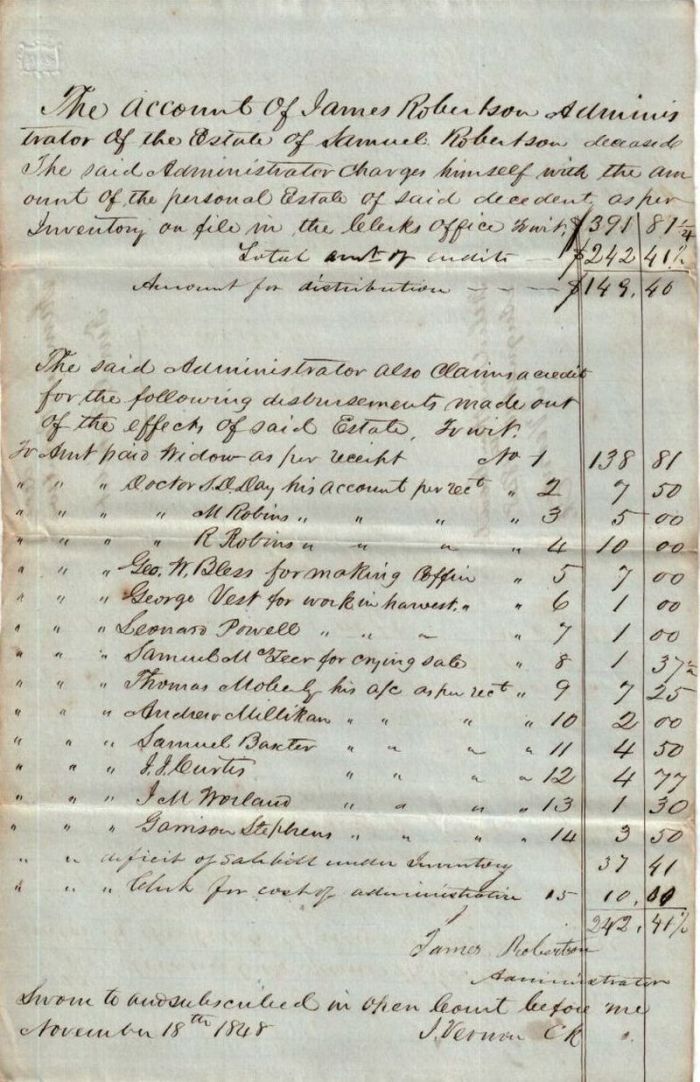 The Account Of James Robertson Adminis
trator Of the Estate of Samuel Robertson deceased
The said Administrator Charges himself with the am
ount of the personal Estate of said decedent, as per
Inventory on file in the Clerks Office Towit. $391 81 1/4
Total amt of credits — $242 41 1/2
Amount for distribution - - - - $149.40
The said Administrator also Claims a credit
for the following disbursements made out
Of the effects of said Estate, Towit.
To Amt paid Widow as per receipt No 1 138 81
" " " Doctor S. D. Day his account per rect " 2 7 50
" " " " M Robins " " " " 3 5 00
" " " " R Robins " " " " 4 10 00
" " " Geo. W. Bless for making Coffin " 5 7 00
" " " George Vest for work in harvest. " " 6 1 00
" " " Leonard Powell " " " " 7 1 00
" " " Samuel McTeer for crying sale " 8 1 37 1/2
" " " Thomas Moberly his a/c as per rect " 9 7 25
" " " Andrew Millikan " " " " 10 2 00
" " " Samuel Baxter " " " " 11 4 50
" " " J. J. Curtis " " " " 12 4 77
" " " J M Worland " " " " 13 1 30
" " " Garrison Stephens " " " " 14 3 50
" " deficit of Salebill under Inventory 37 41
" " " Clerk for cost of administration 15 10.00
242.41 1/2
James Robertson
Administrator
Sworn to and subscribed in open Court before me
November 18th 1848 J. Vernon Ck